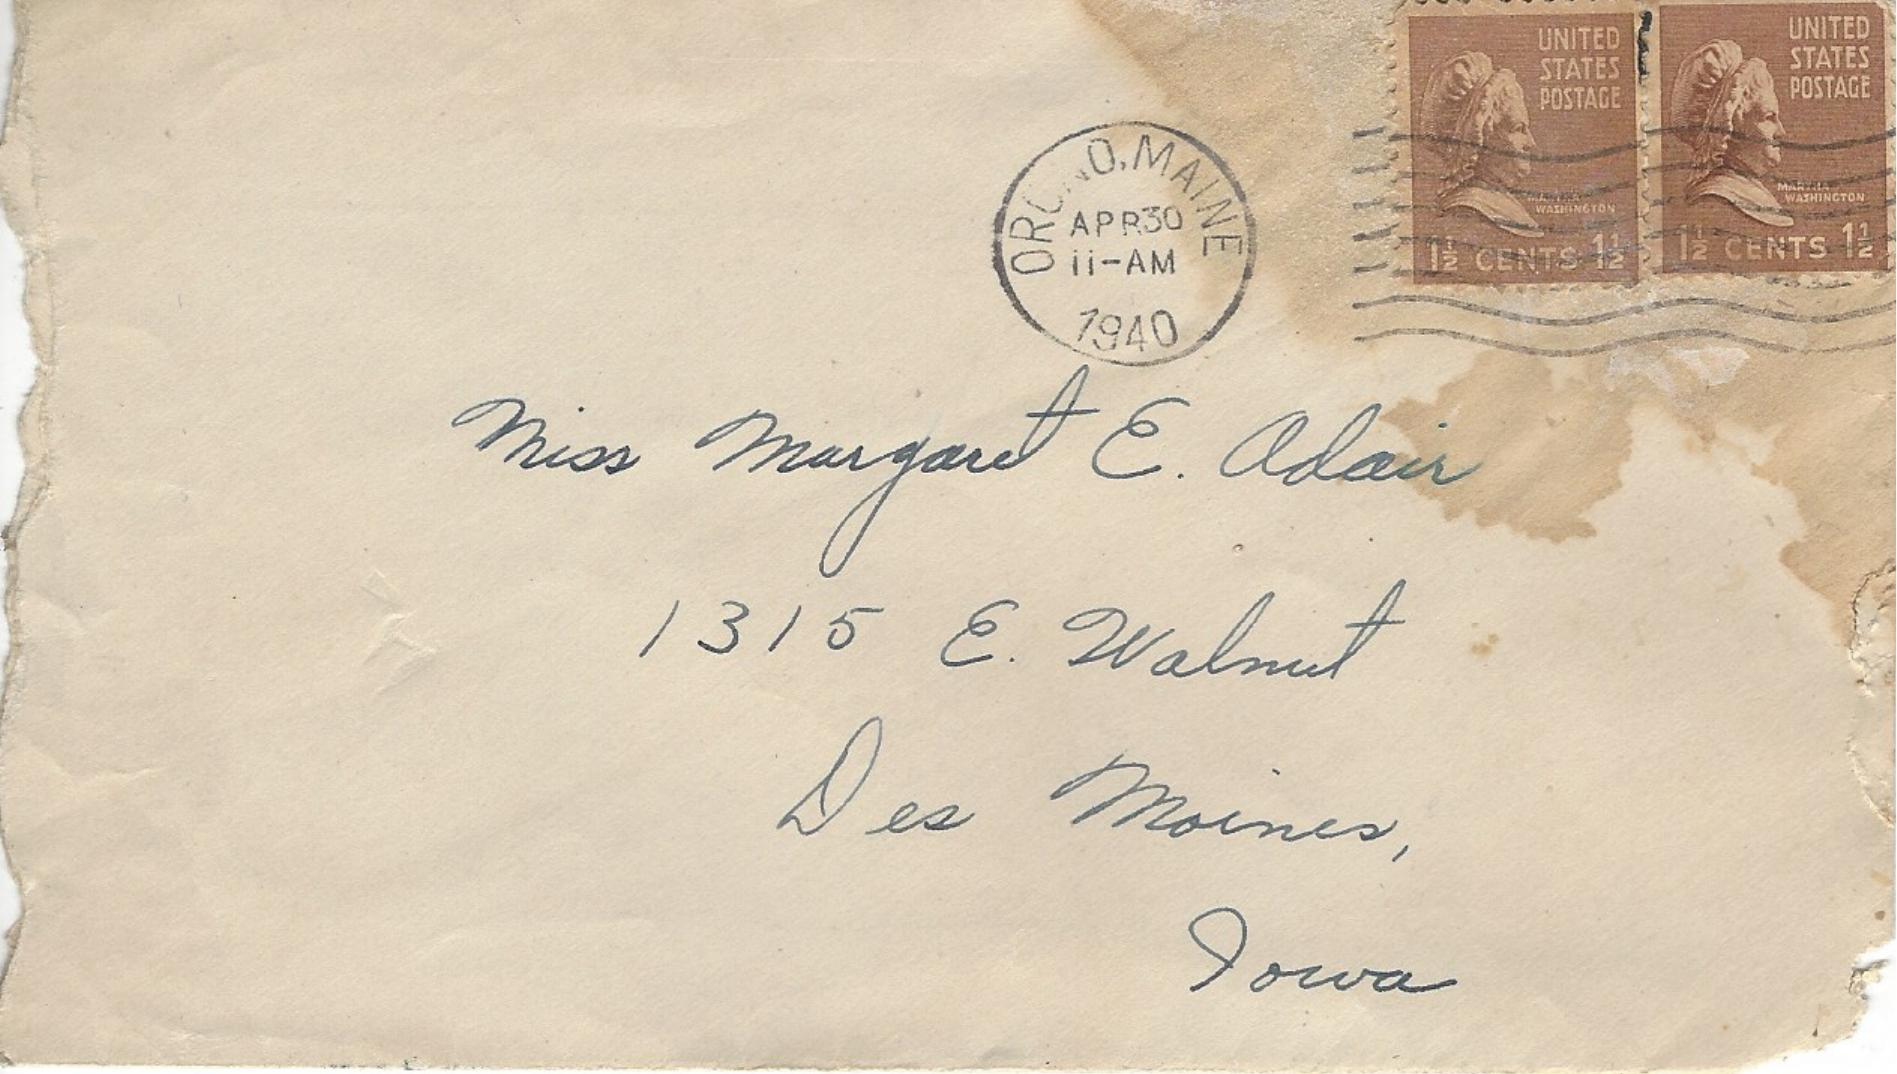 UNITED
STATES
POSTAGE
MARTHA
WASHINGTON
1½ CENTS 1½
UNITED
STATES
POSTAGE
MARTHA
WASHINGTON
1½ CENTS 1½
ORONO, MAINE
APR 30
11-AM
1940
Miss Margaret E. Adair
1315 E. Walnut
Des Moines,
Iowa